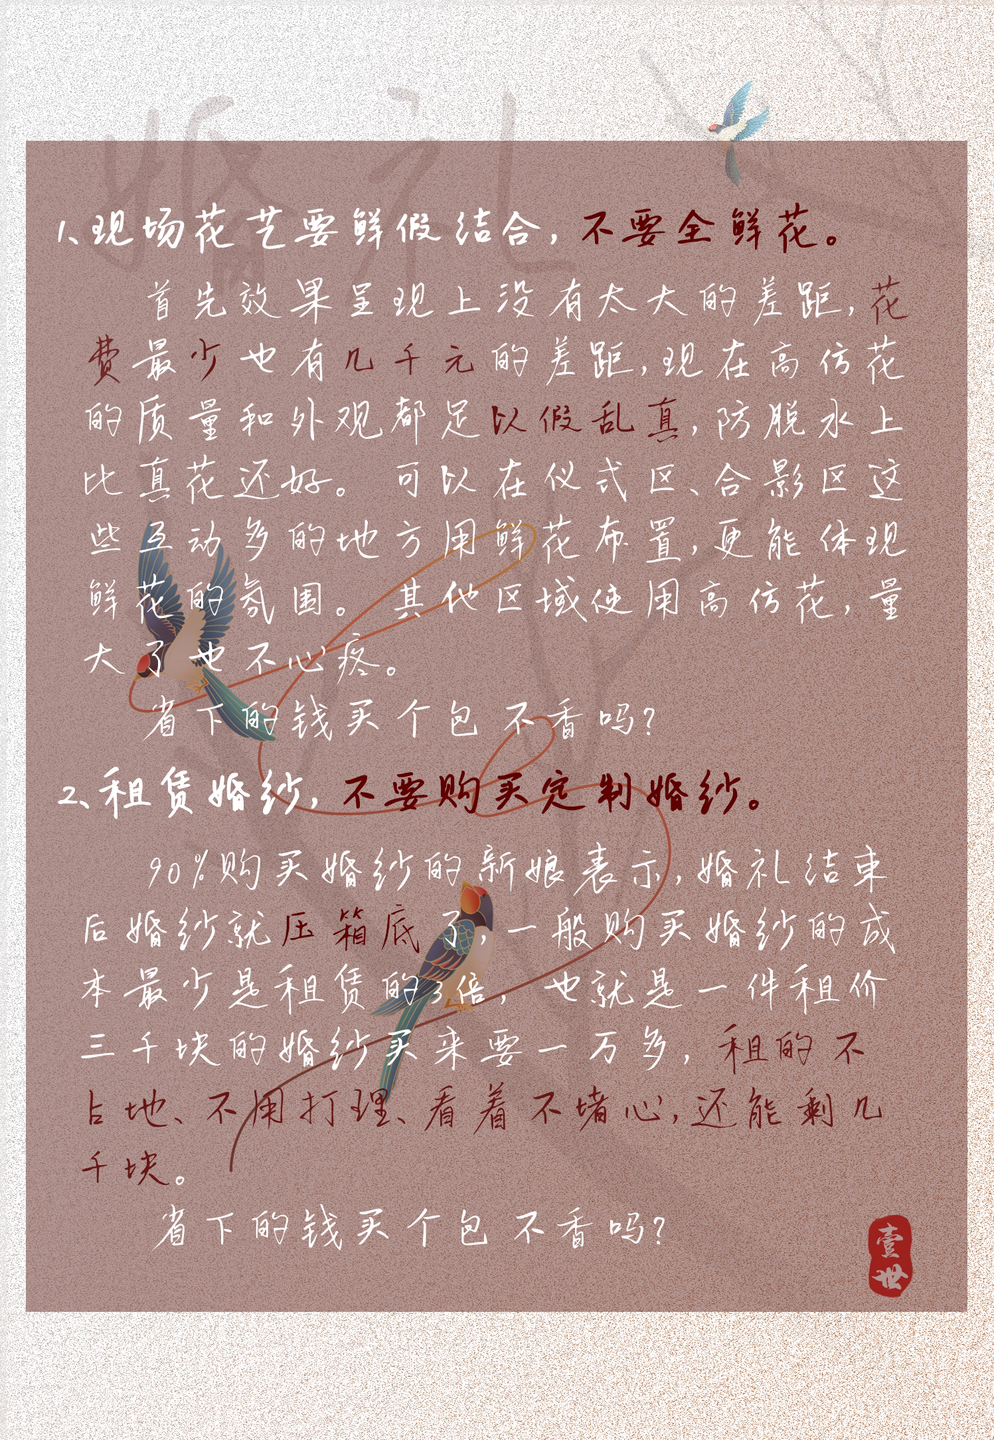 婚礼
1、现场花艺要鲜假结合,不要全鲜花。
首先效果呈现上没有太大的差距,花
费最少也有几千元的差距,现在高仿花
的质量和外观都足以假乱真,防脱水上
比真花还好。可以在仪式区、合影区这
些互动多的地方用鲜花布置,更能体现
鲜花的氛围。其他区域使用高仿花,量
大了也不心疼。
省下的钱买个包不香吗?
2、租赁婚纱,不要购买定制婚纱。
90%购买婚纱的新娘表示,婚礼结束
后婚纱就压箱底了,一般购买婚纱的成
本最少是租赁的3倍,也就是一件租价
三千块的婚纱买来要一万多,租的不
占地、不用打理、看着不堵心,还能剩几
千块。
省下的钱买个包不香吗?
壹
世